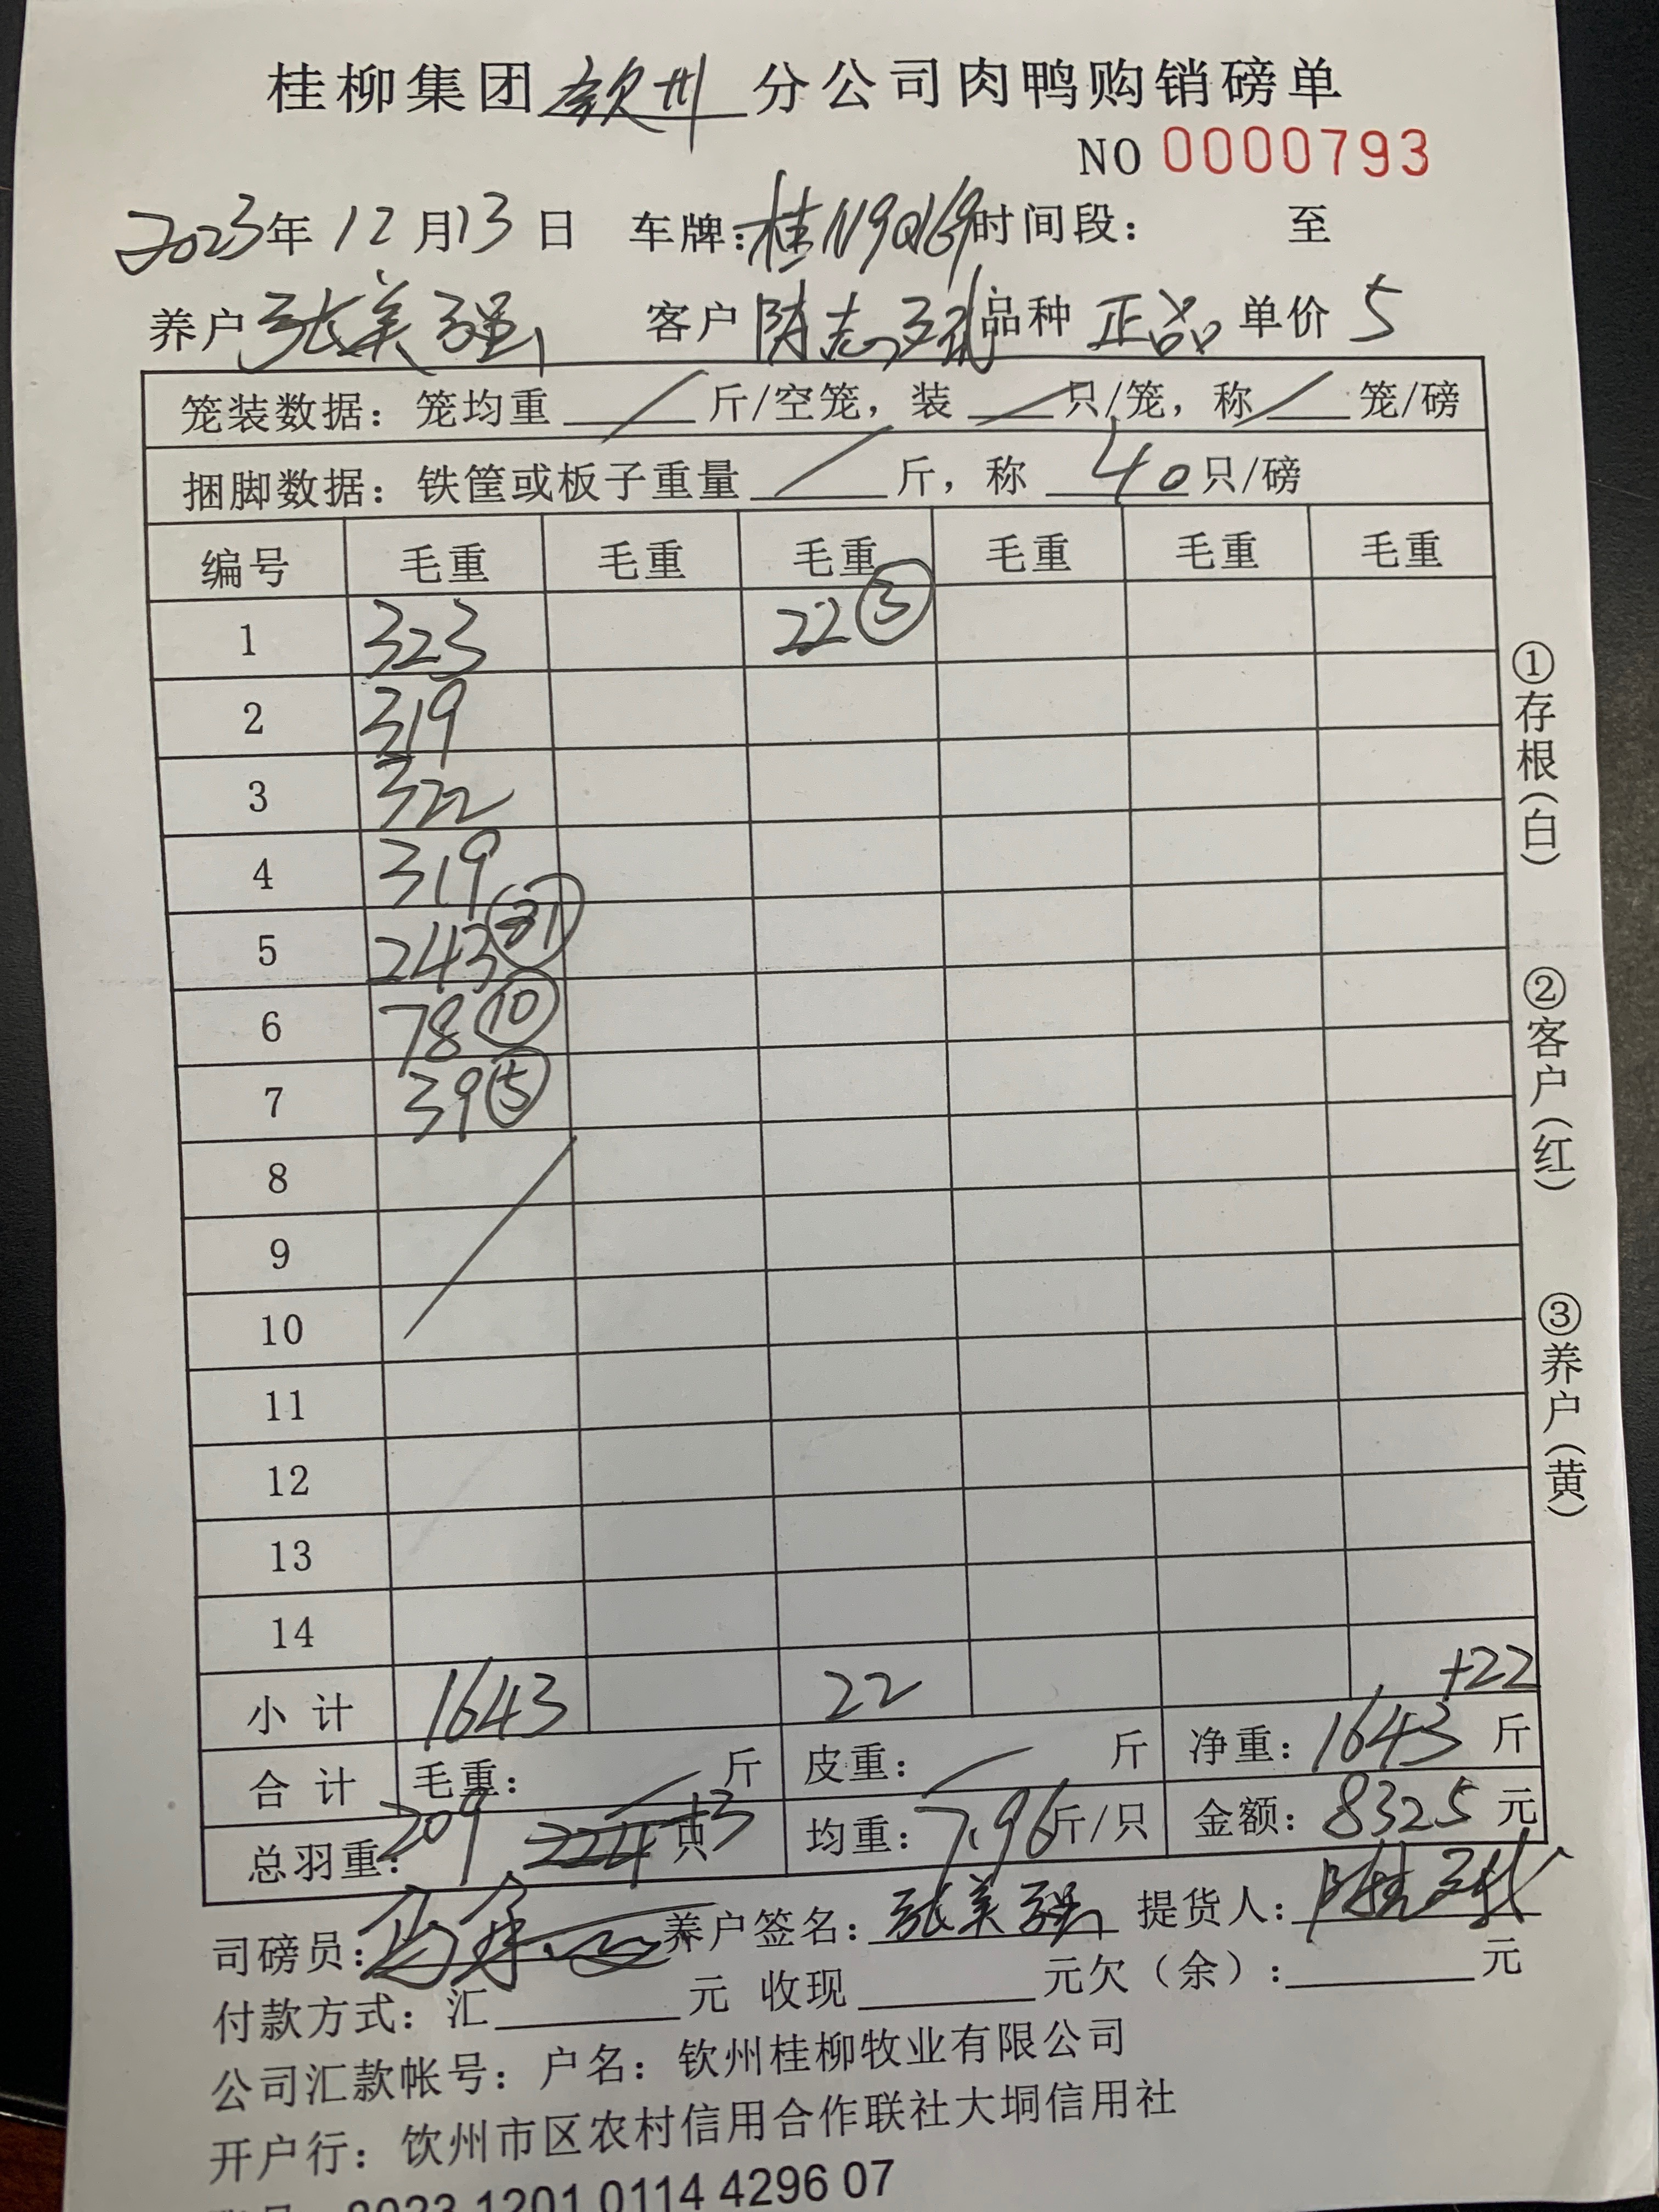 桂柳集团钦州分公司肉鸭购销磅单
NO 0000793
2023年12月13日 车牌:桂N9Q169时间段: 至
养户张美强 客户陈志 品种 正品 单价 5
笼装数据: 笼均重 / 斤/空笼, 装 / 只/笼, 称 / 笼/磅
捆脚数据: 铁筐或板子重量 / 斤, 称 40 只/磅
编号 毛重 毛重 毛重 毛重 毛重 毛重
1 323 22 ③
2 319
3 322
4 319
5 243 ㉛
6 78 ⑩
7 39 ⑤
8
9
10
11
12
13
14
小计 1643 22 +22
合计 毛重: / 斤 皮重: / 斤 净重: 1643 斤
总羽重: 209 224 +3 只 均重: 7.96斤/只 金额: 8325 元
司磅员: 养户签名: 张美强 提货人:
付款方式: 汇 元 收现 元欠(余): 元
公司汇款帐号: 户名: 钦州桂柳牧业有限公司
开户行: 钦州市区农村信用合作联社大垌信用社
1201 0114 4296 07
①存根(白)
②客户(红)
③养户(黄)